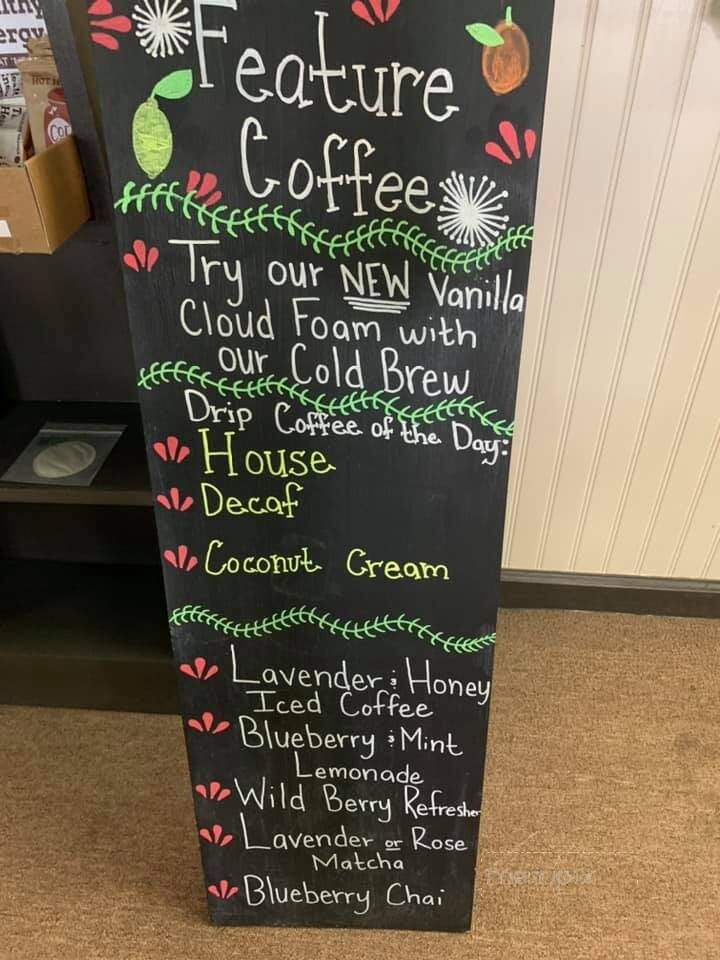 Feature
Coffee
Try our NEW Vanilla
Cloud Foam with
our Cold Brew
Drip Coffee of the Day:
House
Decaf
Coconut Cream
Lavender & Honey
Iced Coffee
Blueberry & Mint
Lemonade
Wild Berry Refresher
Lavender or Rose
Matcha
Blueberry Chai